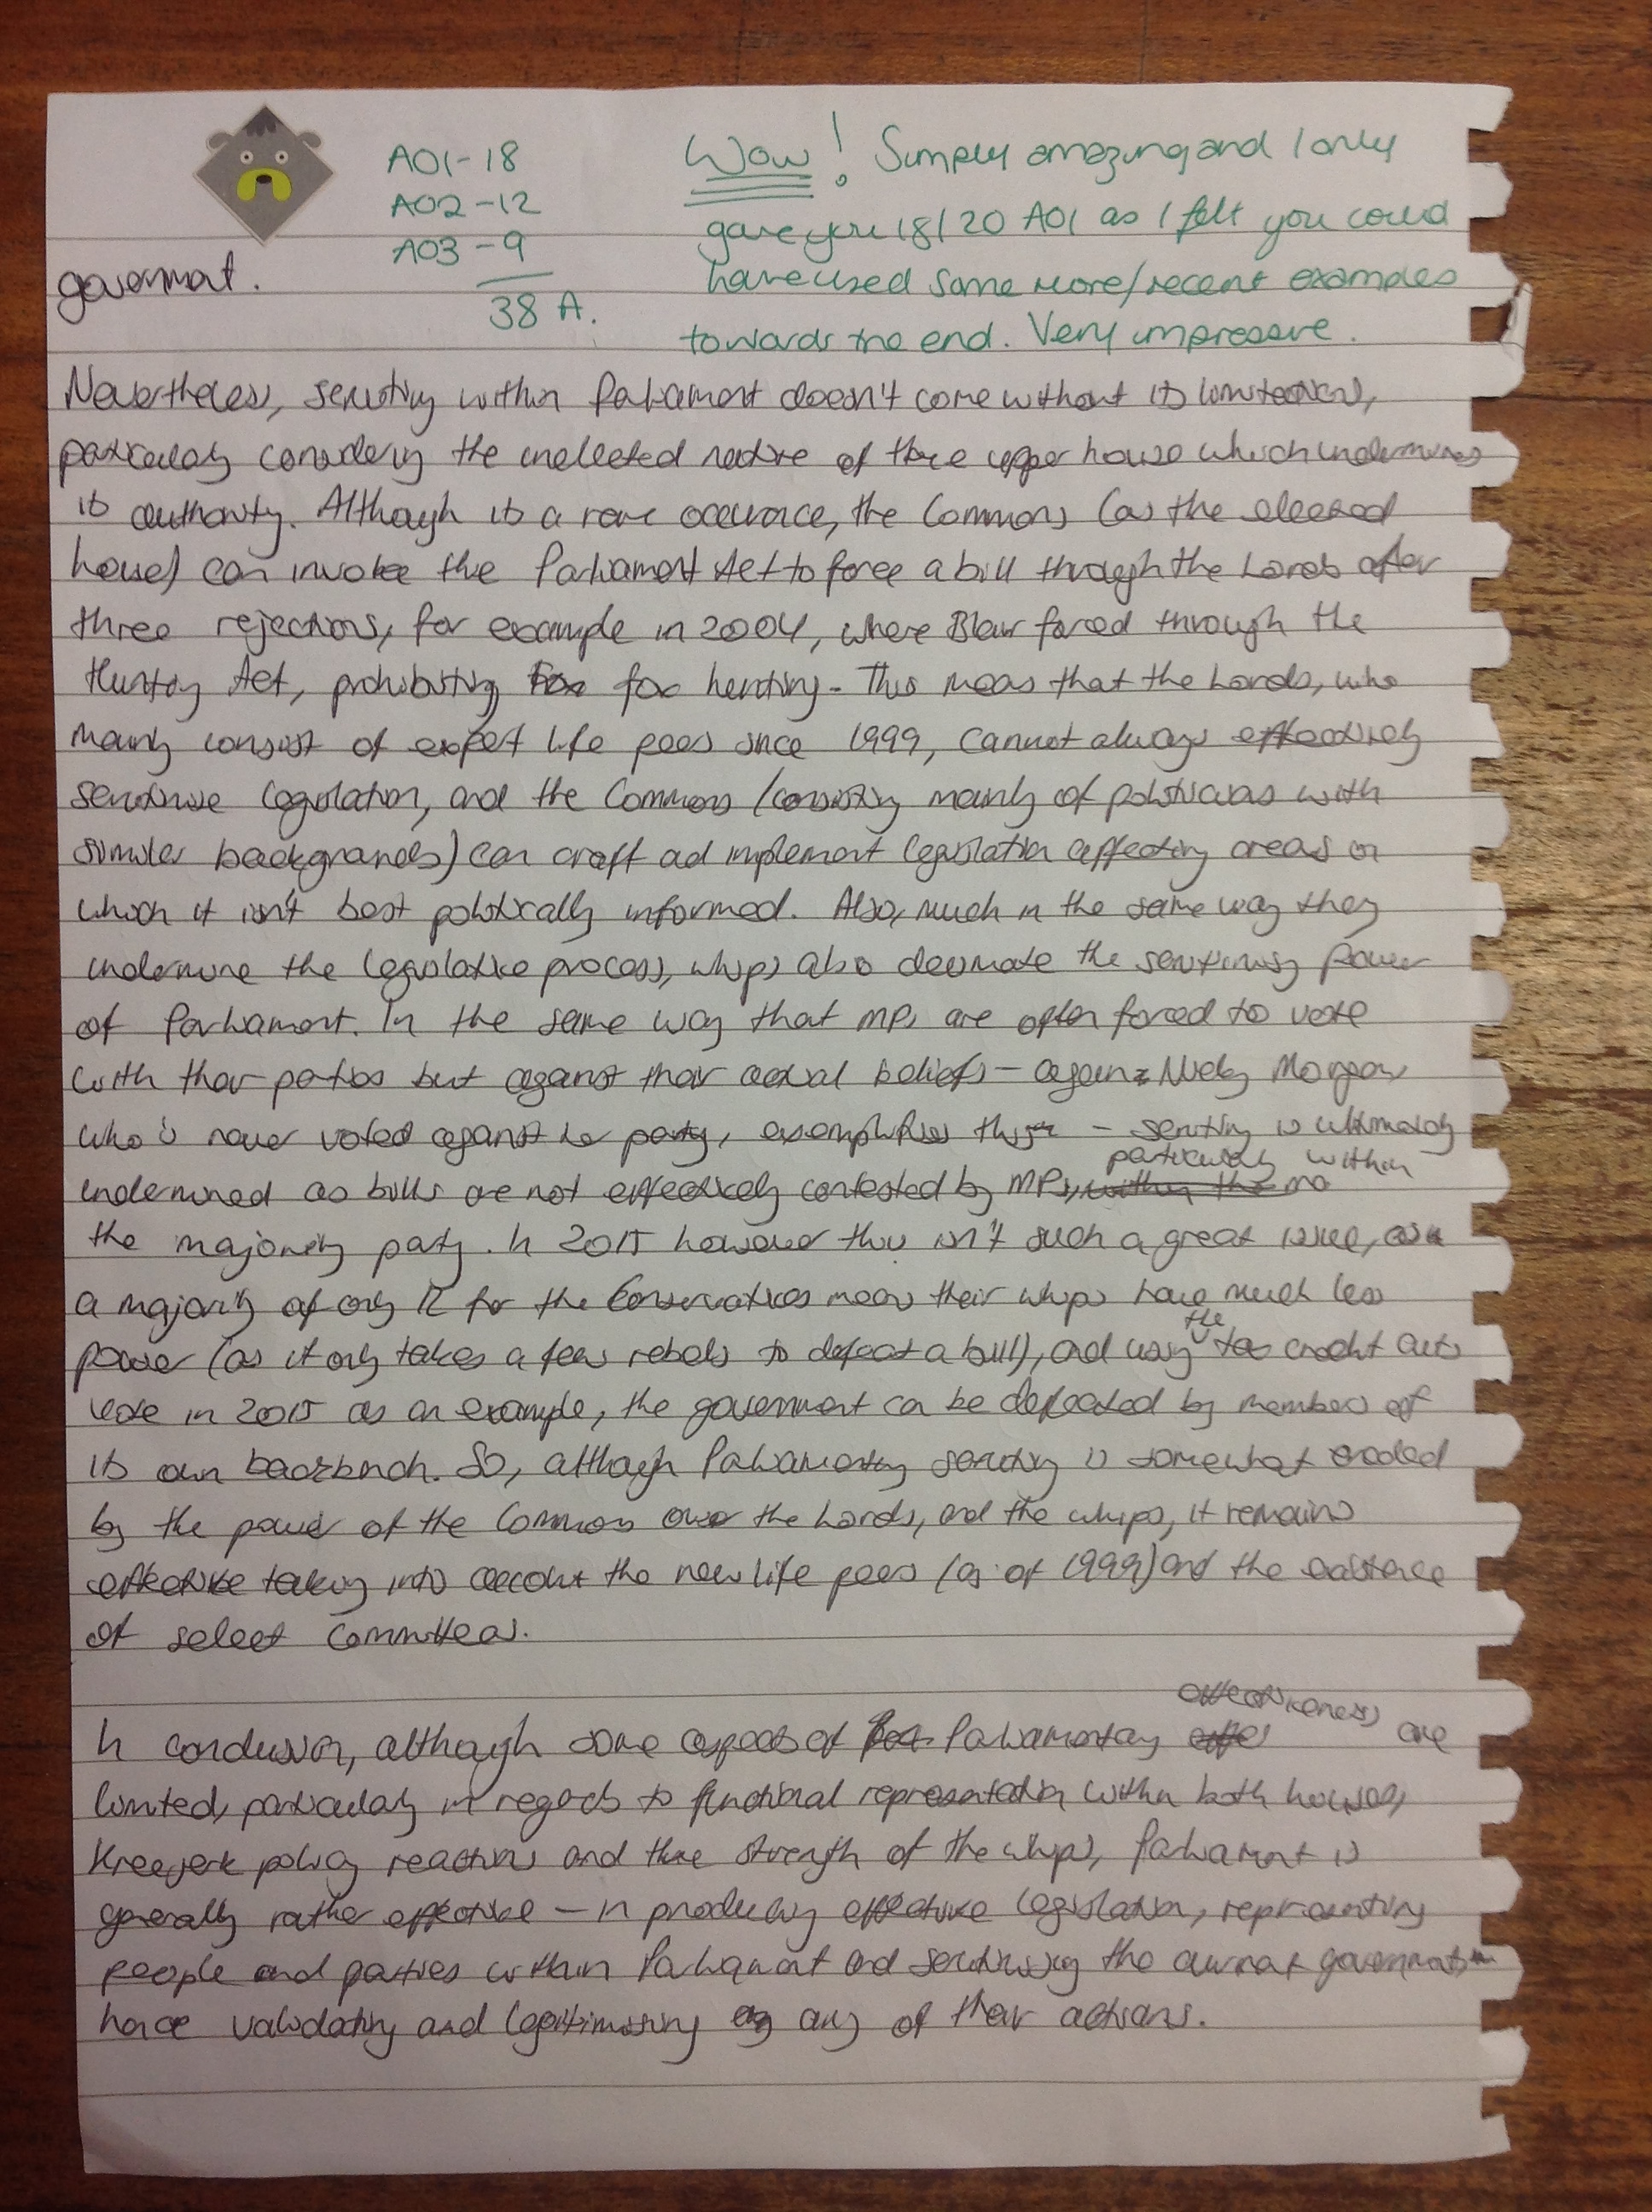 A01-18
A02-12
A03-9
38 A.
Wow! Simply amazing and I only
gave you 18/20 A01 as I felt you could
have used some more/recent examples
towards the end. Very impressive.
government.
Nevertheless, scrutiny within Parliament doesn't come without its limitations,
particularly considering the unelected nature of the upper house which undermines
its authority. Although its a rare occurance, the Commons (as the elected
house) can invoke the Parliament Act to force a bill through the Lords after
three rejections, for example in 2004, where Blair forced through the
Hunting Act, prohibiting fox hunting. This means that the Lords, who
mainly consist of expert life peers since 1999, cannot always effectively
scrutinise legislation, and the Commons (consisting mainly of politicians with
similar backgrounds) can craft and implement legislation affecting areas on
which it isn't best politically informed. Also, much in the same way they
undermine the legislative process, whips also decimate the scrutinising power
of Parliament. In the same way that MPs are often forced to vote
with their parties but against their actual beliefs - again Nicky Morgan,
who's never voted against her party, exemplifies this - scrutiny is ultimately
undermined as bills are not effectively contested by MPs, particularly within
the majority party. In 2015 however this isn't such a great issue, as
a majority of only 12 for the Conservatives means their whips have much less
power (as it only takes a few rebels to defeat a bill), and using the tax credit cuts
vote in 2015 as an example, the government can be defeated by members of
its own backbench. So, although Parliamentary scrutiny is somewhat eroded
by the power of the Commons over the Lords, and the whips, it remains
effective taking into account the new life peers (as of 1999) and the existence
of select committees.
In conclusion, although some aspects of Parliamentary effectiveness are
limited, particularly in regards to functional representation within both houses,
Kneejerk policy reactions and the strength of the whips, Parliament is
generally rather effective - in producing effective legislation, representing
people and parties within Parliament and scrutinising the current government,
hence validating and legitimising any of their actions.